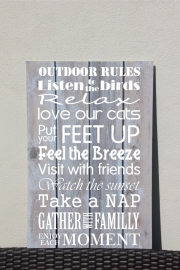 OUTDOOR RULES
Listen to the birds
Relax
love our cats
Put your FEET UP
Feel the Breeze
Visit with friends
Watch the sunset
Take a NAP
GATHER WITH THE FAMILLY
ENJOY EACH MOMENT